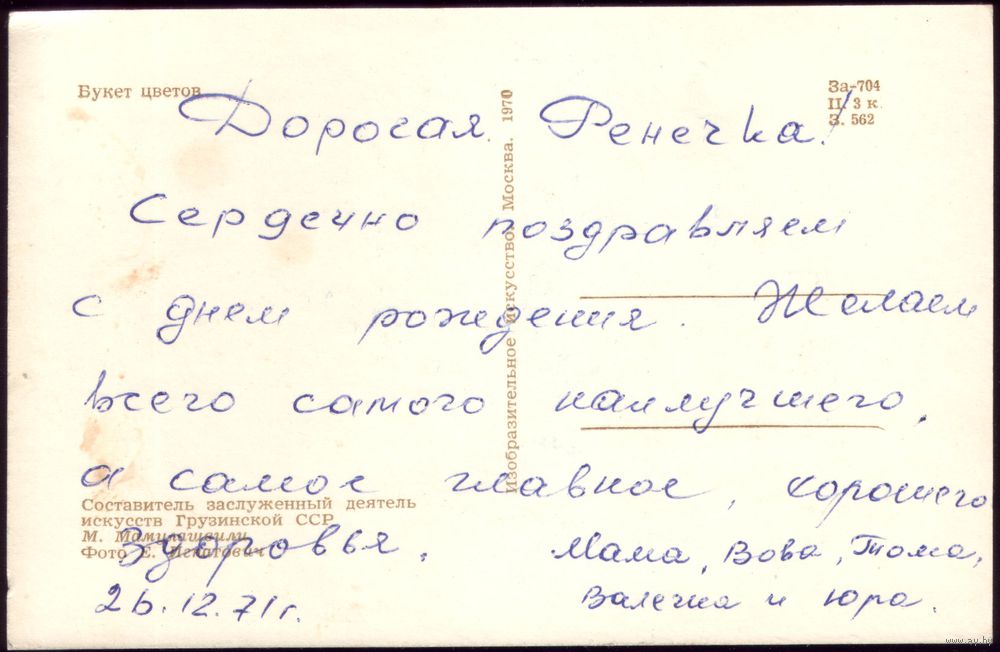 Букет цветов
За-704
Ц. 3 к.
З. 562
Дорогая Ренечка!
Сердечно поздравляем
с днем рождения. Желаем
всего самого наилучшего,
а самое главное, хорошего
Здоровья.
Мама, Вова, Тома,
Валечка и Юра.
26.12.71 г.
Составитель заслуженный деятель
искусств Грузинской ССР
М. Мамулашвили
Фото Е. Игнатович
Изобразительное искусство. Москва. 1970
www.ay.by